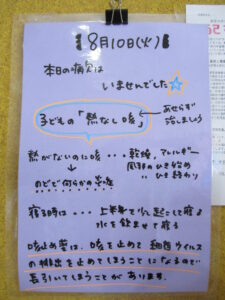 8月10日(火)
本日の病欠は
いませんでした☆
子どもの「熱なし咳」
あせらず
治しましょう
熱がないのに咳・・・乾燥、アレルギー
風邪のひき始め
〃 ひき終わり
のどで何らかの炎症
寝る時は・・・上半身を少し起こして寝る
水を飲ませて寝る
咳止め薬は、咳を止めて細菌ウイルス
の排出を止めてしまうことになるので
長引いてしまうことがあります。